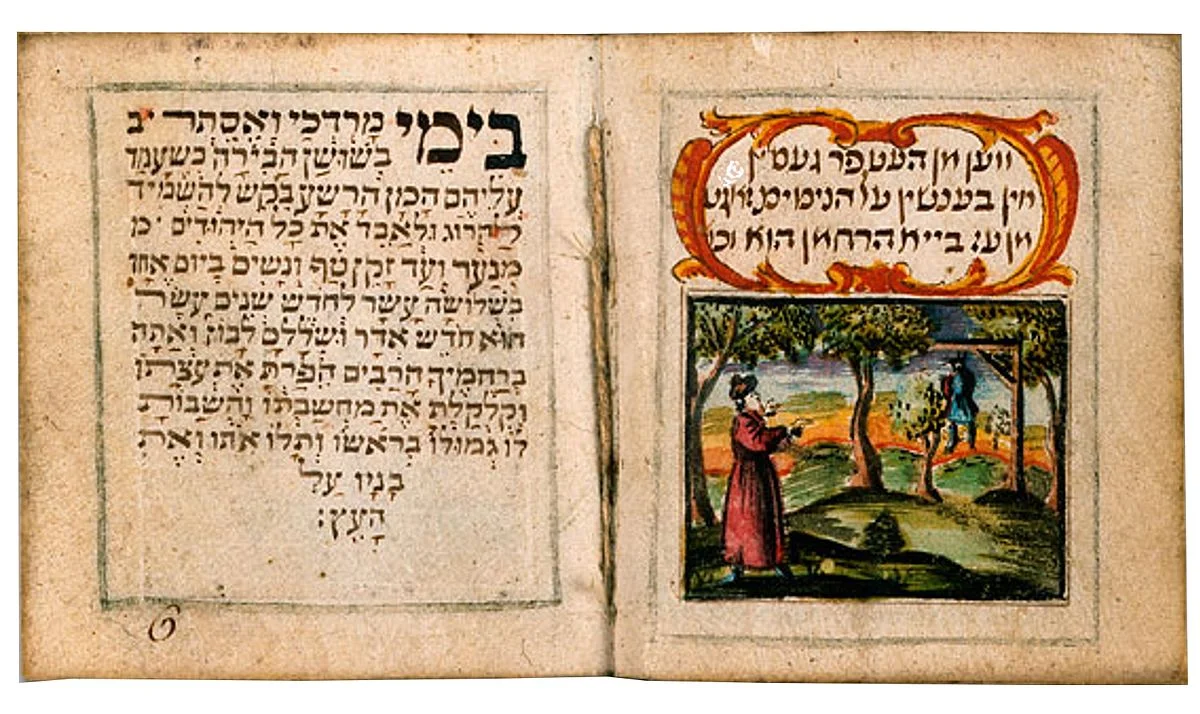 ווען מן העט פר געסין
אין בענטשין על הניסים
מן עז בייא הרחמן הוא וכו
בִּימֵי מָרְדְּכַי וְאֶסְתֵּר
בְּשׁוּשַׁן הַבִּירָה כְּשֶׁעָמַד
עֲלֵיהֶם הָמָן הָרָשָׁע בִּקֵּשׁ לְהַשְׁמִיד
לַהֲרוֹג וּלְאַבֵּד אֶת כָּל הַיְּהוּדִים
מִנַּעַר וְעַד זָקֵן טַף וְנָשִׁים בְּיוֹם אֶחָד
בִּשְׁלוֹשָׁה עָשָׂר לְחֹדֶשׁ שְׁנֵים עָשָׂר
הוּא חֹדֶשׁ אֲדָר וּשְׁלָלָם לָבוֹז וְאַתָּה
בְּרַחֲמֶיךָ הָרַבִּים הֵפַרְתָּ אֶת עֲצָתוֹ
וְקִלְקַלְתָּ אֶת מַחֲשַׁבְתּוֹ וַהֲשֵׁבוֹתָ
לוֹ גְּמוּלוֹ בְּרֹאשׁוֹ וְתָלוּ אֹתוֹ וְאֶת
בָּנָיו עַל
הָעֵץ:
6